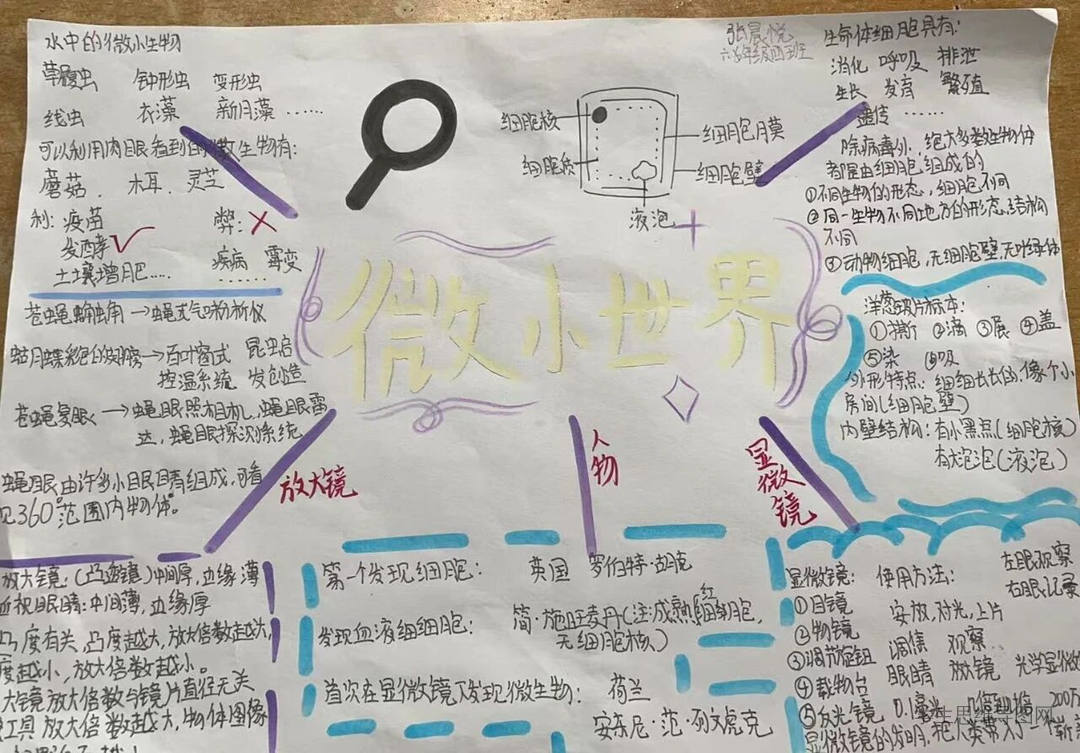 水中的微小生物
草履虫 钟形虫 变形虫
线虫 衣藻 新月藻……
可以利用肉眼看到的微生物有：
蘑菇、木耳、灵芝
利：疫苗 弊：
发酵
土壤增肥…… 疾病 霉变
……
苍蝇触角→蝇式气味分析仪
蛾月蝶彩色的翅膀→百叶窗式 昆虫启
控温系统 发创造
苍蝇复眼→蝇眼照相机，蝇眼雷
达，蝇眼探测系统
蝇眼由许多小眼睛组成，可看
见360°范围内物体。
细胞核
细胞质
细胞膜
细胞壁
液泡
张晨悦
六年级四班
生命体细胞具有：
消化 呼吸 排泄
生长 发育 繁殖
遗传 ……
除病毒外，绝大多数生物体
都是由细胞组成的
①不同生物的形态，细胞不同
②同一生物不同地方的形态结构
不同
③动物细胞，无细胞壁，无叶绿体
洋葱皮片标本：
①撕 ②滴 ③展 ④盖
⑤染 ⑥吸
外形特点：细细长长的，像个小
房间（细胞壁）
内壁结构：有小黑点（细胞核）
有大泡泡（液泡）
微小世界
放大镜
人物
显微镜
放大镜：（凸透镜）中间厚，边缘薄
近视眼睛：中间薄，边缘厚
凸度有关，凸度越大，放大倍数越大，
度越小，放大倍数越小。
大镜放大倍数与镜片直径无关
工具放大倍数越大，物体图像
第一个发现细胞： 英国 罗伯特·胡克
发现血液细细胞： 简·施旺麦丹（注：成熟红细胞，
无细胞核）
首次在显微镜下发现微生物： 荷兰
安东尼·范·列文虎克
显微镜： 使用方法： 左眼观察
右眼记录
①目镜 安放，对光，上片
②物镜 调焦 观察
③调节旋钮 眼睛 放镜 光学显微
④载物台 0.1毫米 200万
⑤反光镜
显微镜的发明，把人类带入了一个崭新
生思维导图网